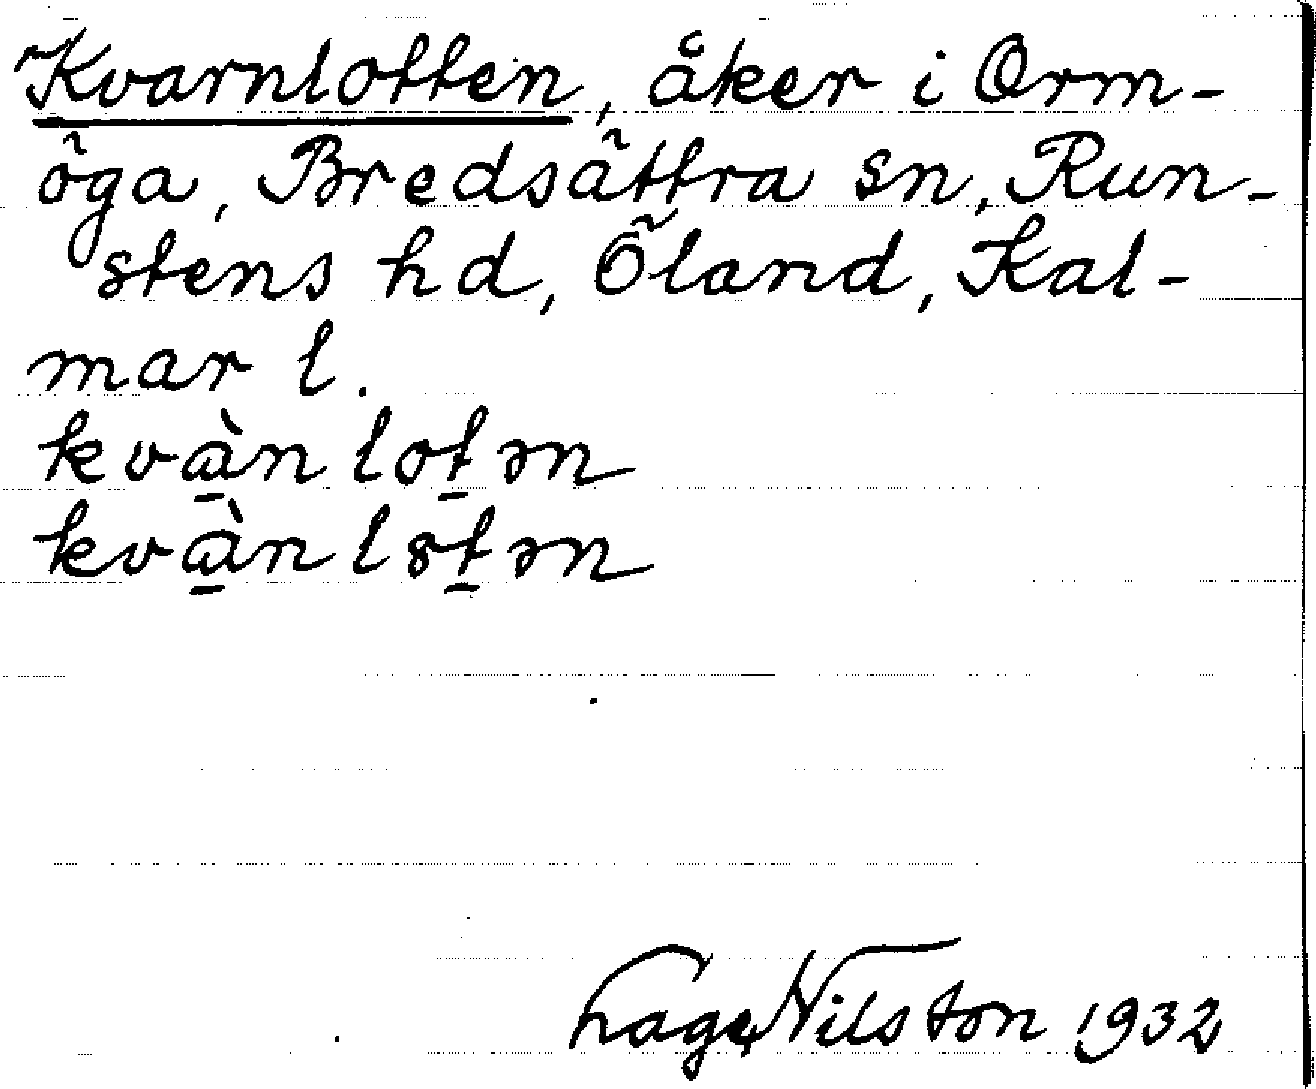 Kvarnlotten, åker i Orm-
öga, Bredsättra sn, Run-
stens hd, Öland, Kal-
mar l.
kvà̱nlot̠ən
kvà̱nlȣt̠ən
Nilsson 1932